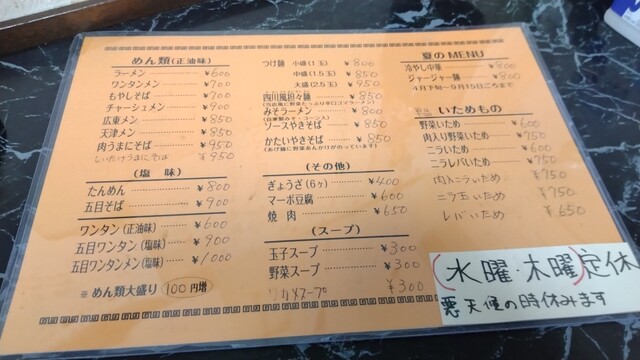 めん類(正油味)
ラーメン ¥600
ワンタンメン ¥700
もやしそば ¥700
チャーシュメン ¥900
広東メン ¥850
天津メン ¥850
肉うまにそば ¥950
しいたけうまにそば ¥950
(塩 味)
たんめん ¥800
五目そば ¥900
ワンタン(正油味) ¥600
五目ワンタン(塩味) ¥900
五目ワンタンメン(塩味) ¥1000
※めん類大盛り 100円増
つけ麺 中盛(1玉) ¥800
中盛(1.5玉) ¥850
大盛(2.5玉) ¥950
四川風担々麺 ¥850
(当店風に野菜たっぷり辛口ゴマラーメン)
みそラーメン ¥800
ソースやきそば ¥850
かたいやきそば ¥850
(あげ麺に野菜あんかけがのっています)
(その他)
ぎょうざ(6ヶ) ¥400
マーボ豆腐 ¥600
焼 肉 ¥650
(スープ)
玉子スープ ¥300
野菜スープ ¥300
ワカメスープ ¥300
夏のMENU
冷やし中華 ¥800
ジャージャー麺 ¥800
4月下旬〜9月15日ごろまで
いためもの
野菜いため ¥600
肉入り野菜いため ¥750
ニラいため ¥600
ニラレバいため ¥750
肉入ニラいため ¥750
ニラ玉いため ¥750
レバいため ¥650
(水曜・木曜)定休
悪天候の時休みます